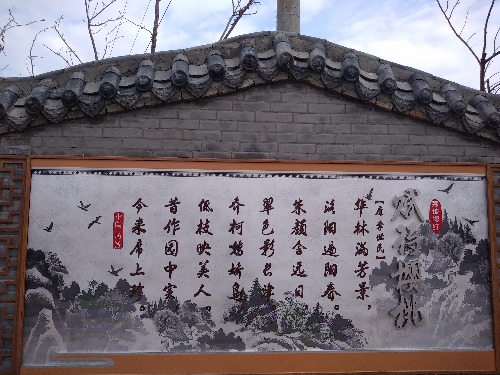 赋得樱桃
【唐·李世民】
华林满芳景，
洛阳遍阳春。
朱颜含远日
翠色影长津
乔柯啭娇鸟
低枝映美人。
昔作园中实
今来席上珍。